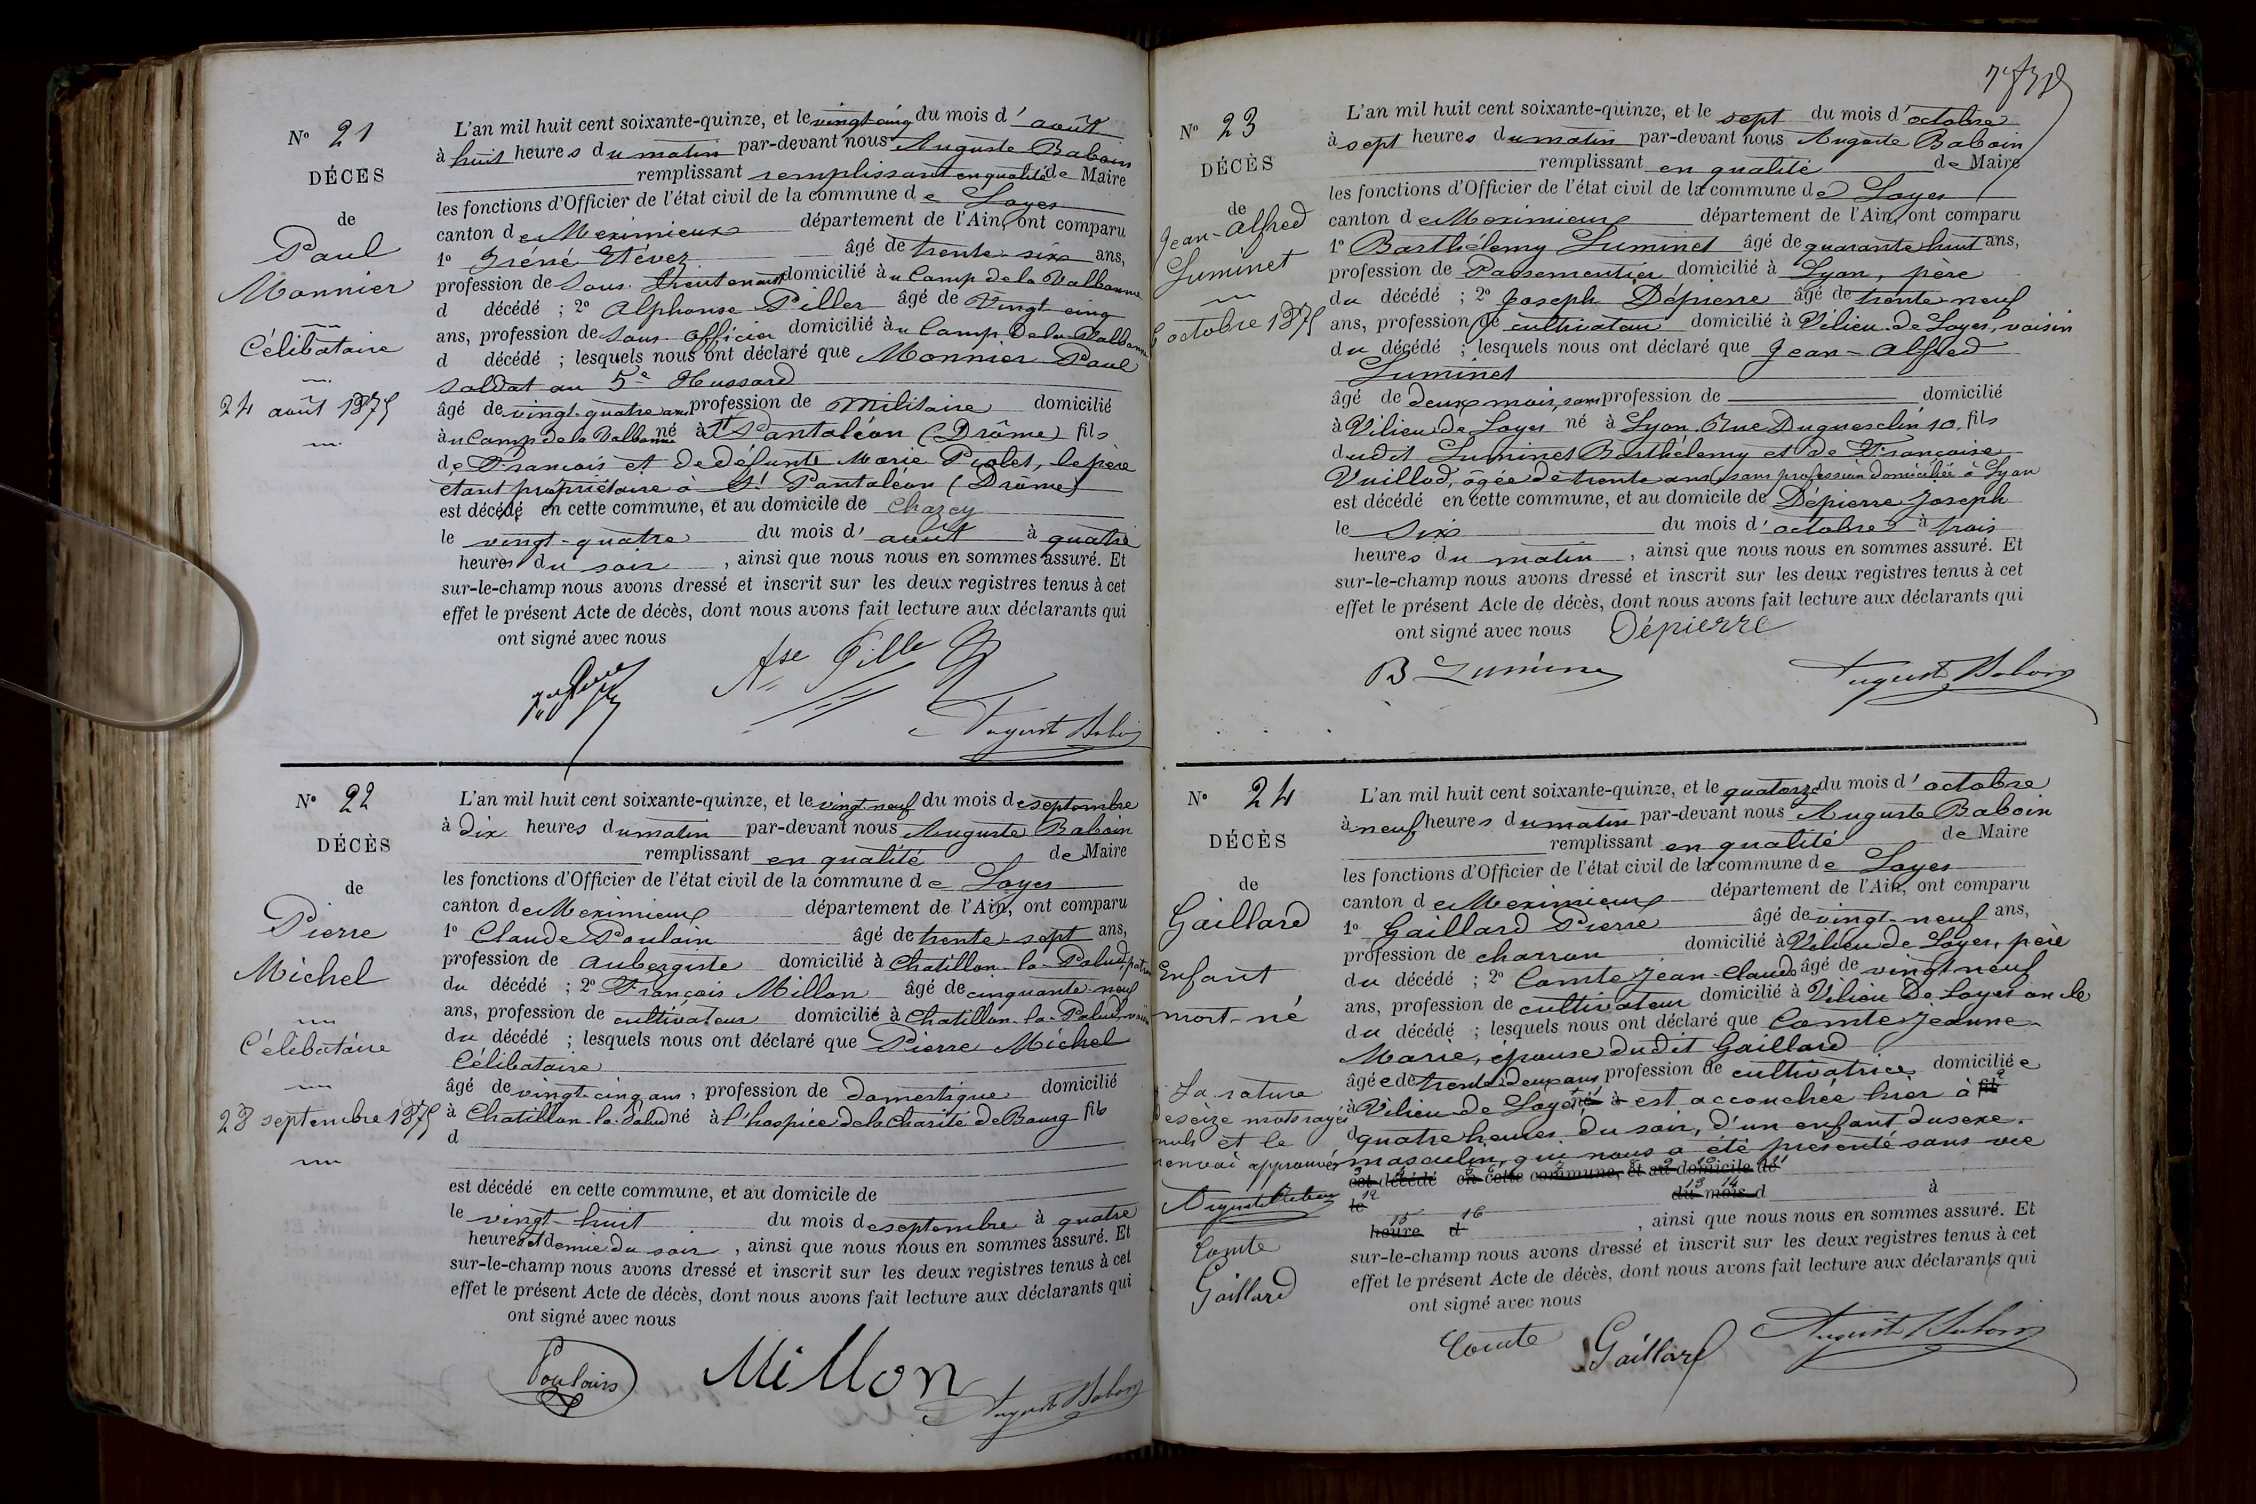 N° 21
DÉCES
de
Paul
Monnier
Célibataire
24 août 1875
L'an mil huit cent soixante-quinze, et le vingt-cinq du mois d'août
à huit heures du matin par-devant nous Auguste Baboin
remplissant remplissant en qualité de Maire
les fonctions d'Officier de l'état civil de la commune de Loyes
canton de Meximieux département de l'Ain, ont comparu
1° Iréné Etévez âgé de trente-six ans,
profession de Sous-lieutenant domicilié au Camp de la Valbonne
d décédé ; 2° Alphonse Piller âgé de Vingt cinq
ans, profession de Sous officier domicilié au Camp de la Valbonne
d décédé ; lesquels nous ont déclaré que Monnier Paul
soldat au 5e Hussard
âgé de vingt-quatre ans profession de Militaire domicilié
au Camp de la Valbonne né à St Pantaléon (Drôme) fils
de François et de défunte Marie Piolet, le père
étant propriétaire à St Pantaléon (Drôme)
est décédé en cette commune, et au domicile de Charcy
le vingt-quatre du mois d'août à quatre
heures du soir, ainsi que nous nous en sommes assuré. Et
sur-le-champ nous avons dressé et inscrit sur les deux registres tenus à cet
effet le présent Acte de décès, dont nous avons fait lecture aux déclarants qui
ont signé avec nous
Ase Pille
August Baboin
N° 22
DÉCÈS
de
Pierre
Michel
Célibataire
28 septembre 1875
L'an mil huit cent soixante-quinze, et le vingt-neuf du mois de septembre
à dix heures du matin par-devant nous Auguste Baboin
remplissant en qualité de Maire
les fonctions d'Officier de l'état civil de la commune de Loyes
canton de Meximieux département de l'Ain, ont comparu
1° Claude Poulain âgé de trente-sept ans,
profession de aubergiste domicilié à Chatillon-la-Palud, patron
du décédé ; 2° François Millon âgé de cinquante-neuf
ans, profession de cultivateur domicilié à Chatillon-la-Palud, voisin
du décédé ; lesquels nous ont déclaré que Pierre Michel
Célibataire
âgé de vingt-cinq ans, profession de domestique domicilié
à Chatillon-la-Palud né à l'hospice de la Charité de Bourg fils
d
est décédé en cette commune, et au domicile de
le vingt-huit du mois de septembre à quatre
heures et demie du soir, ainsi que nous nous en sommes assuré. Et
sur-le-champ nous avons dressé et inscrit sur les deux registres tenus à cet
effet le présent Acte de décès, dont nous avons fait lecture aux déclarants qui
ont signé avec nous
Poulain Millon
August Baboin
N° 23
DÉCÈS
de
Jean-Alfred
Luminet
6 octobre 1875
L'an mil huit cent soixante-quinze, et le sept du mois d'octobre
à sept heures du matin par-devant nous Auguste Baboin
remplissant en qualité de Maire
les fonctions d'Officier de l'état civil de la commune de Loyes
canton de Meximieux département de l'Ain, ont comparu
1° Barthélemy Luminet âgé de quarante huit ans,
profession de Passementier domicilié à Lyon, père
du décédé ; 2° Joseph Dépierre âgé de trente neuf
ans, profession de cultivateur domicilié à Vilieu-de-Loyes, voisin
du décédé ; lesquels nous ont déclaré que Jean-Alfred
Luminet
âgé de deux mois, sans profession de domicilié
à Vilieu de Loyes né à Lyon, Rue Duguesclin 10, fils
dudit Luminet Barthélemy et de Françoise
Vuillod, âgée de trente ans, sans profession domiciliée à Lyon
est décédé en cette commune, et au domicile de Dépierre Joseph
le Six du mois d'octobre à trois
heures du matin, ainsi que nous nous en sommes assuré. Et
sur-le-champ nous avons dressé et inscrit sur les deux registres tenus à cet
effet le présent Acte de décès, dont nous avons fait lecture aux déclarants qui
ont signé avec nous Dépierre
B Lumine August Baboin
N° 24
DÉCÈS
de
Gaillard
Enfant
mort-né
La rature
de seize mots rayés
nuls et le
renvoi approuvés
Comte
Gaillard
L'an mil huit cent soixante-quinze, et le quatorze du mois d'octobre
à neuf heures du matin par-devant nous Auguste Baboin
remplissant en qualité de Maire
les fonctions d'Officier de l'état civil de la commune de Loyes
canton de Meximieux département de l'Ain, ont comparu
1° Gaillard Pierre âgé de vingt-neuf ans,
profession de charron domicilié à Vilieu de Loyes, père
du décédé ; 2° Comte Jean-Claude âgé de vingt neuf
ans, profession de cultivateur domicilié à Vilieu De Loyes oncle
du décédé ; lesquels nous ont déclaré que Comte Jeanne-
Marie, épouse dudit Gaillard
âgée de trente deux ans profession de cultivatrice domiciliée
à Vilieu de Loyes né à est accouchée hier à fils
d quatre heures du soir, d'un enfant du sexe
masculin, qui nous a été présenté sans vie
est décédé en cette commune, et au domicile de
le du mois d à
heure d , ainsi que nous nous en sommes assuré. Et
sur-le-champ nous avons dressé et inscrit sur les deux registres tenus à cet
effet le présent Acte de décès, dont nous avons fait lecture aux déclarants qui
ont signé avec nous
Comte Gaillard August Baboin